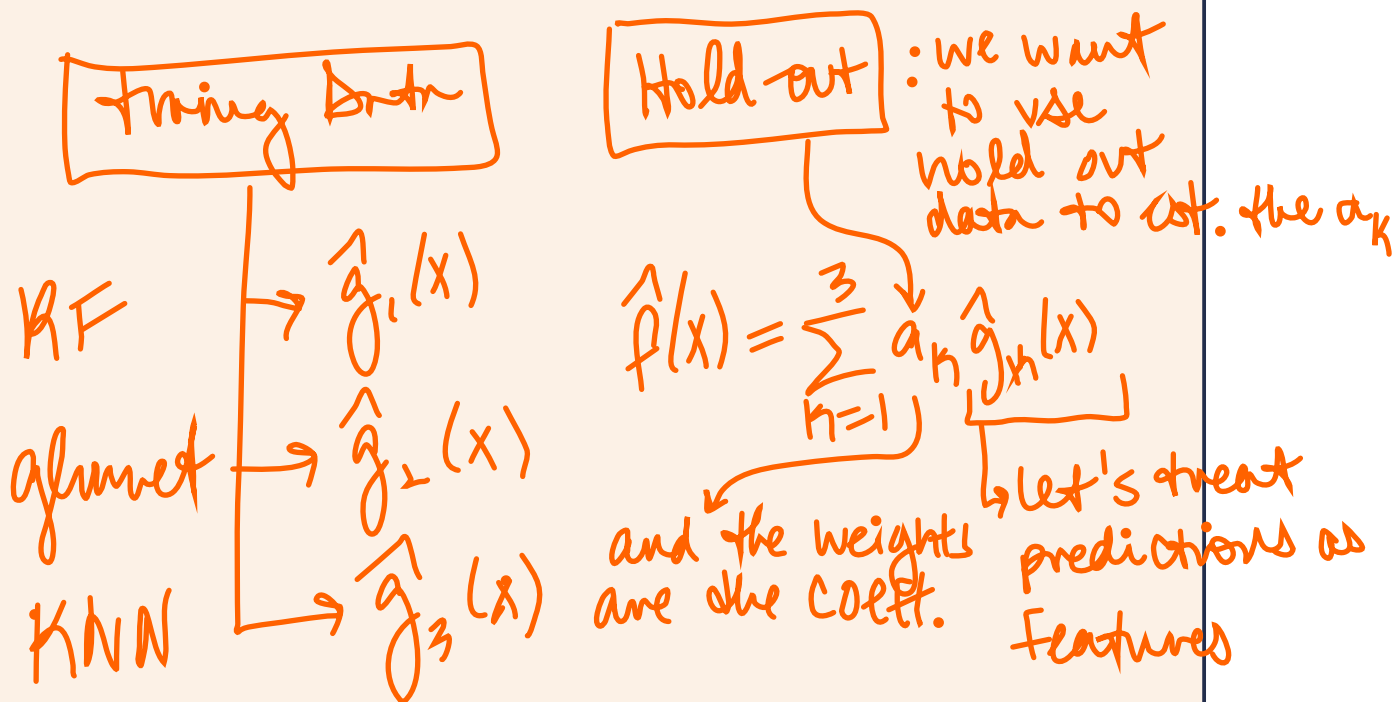 Training Data
RF
ĝ₁(x)
glmnet
ĝ₂(x)
KNN
ĝ₃(x)
Hold out
: we want
to use
hold out
data to est. the aₖ
f̂(x) = ∑ₖ₌₁³ aₖ ĝₖ(x)
and the weights
are the coeff.
let's treat
predictions as
features